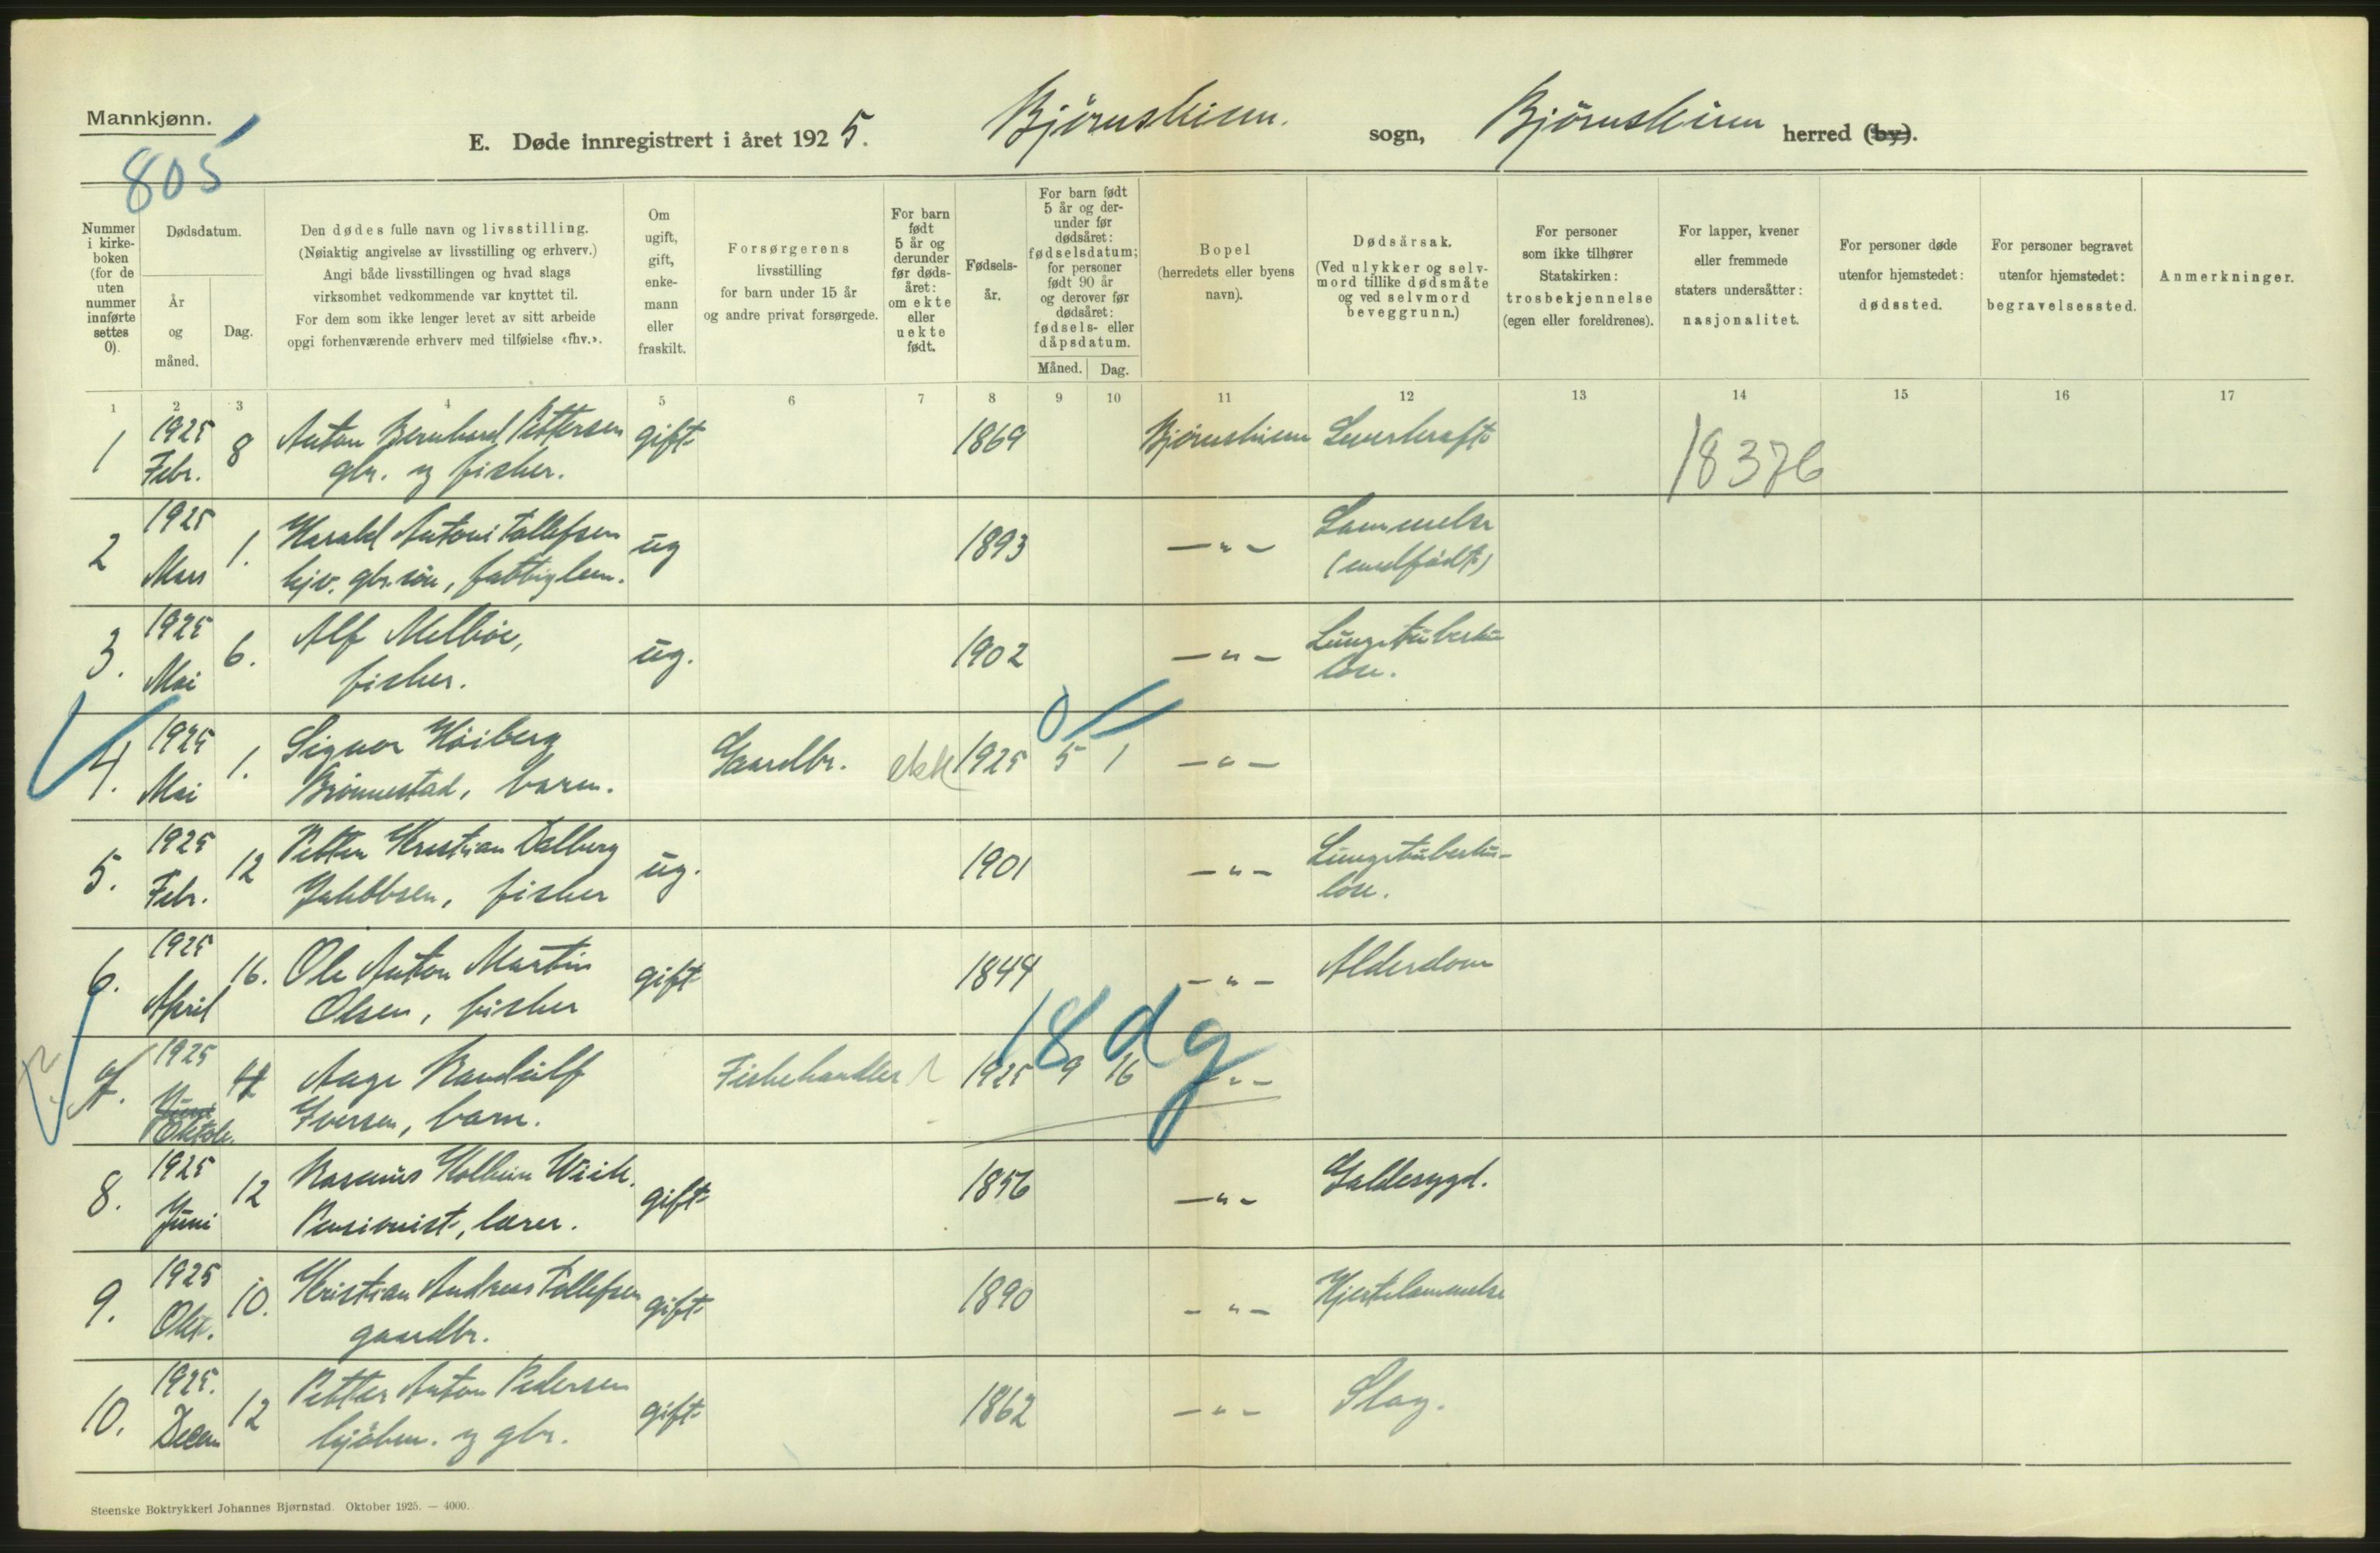 Mannkjønn.
805
E. Døde innregistrert i året 1925. Bjørnskinn. sogn, Bjørnskinn herred (by).
Nummer i kirke-boken (for de uten nummer innførte settes 0).
Dødsdatum.
År og måned.
Dag.
Den dødes fulle navn og livsstilling.
(Nøiaktig angivelse av livsstilling og erhverv.)
Angi både livsstillingen og hvad slags
virksomhet vedkommende var knyttet til.
For dem som ikke lenger levet av sitt arbeide
opgi forhenværende erhverv med tilføielse «fhv.».
Om ugift, gift, enke-mann eller fraskilt.
Forsørgerens
livsstilling
for barn under 15 år
og andre privat forsørgede.
For barn født 5 år og derunder før døds-året: om ekte eller uekte født.
Fødsels-år.
For barn født 5 år og der-under før dødsåret: fødselsdatum; for personer født 90 år og derover før dødsåret: fødsels- eller dåpsdatum.
Måned. Dag.
Bopel
(herredets eller byens
navn).
Dødsårsak.
(Ved ulykker og selv-
mord tillike dødsmåte
og ved selvmord
beveggrunn.)
For personer
som ikke tilhører
Statskirken:
trosbekjennelse
(egen eller foreldrenes).
For lapper, kvener
eller fremmede
staters undersåtter:
nasjonalitet.
For personer døde
utenfor hjemstedet:
dødssted.
For personer begravet
utenfor hjemstedet:
begravelsessted.
Anmerkninger.
1 2 3 4 5 6 7 8 9 10 11 12 13 14 15 16 17
1 1925 Febr. 8 Anton Bernhard Pettersen gift 1869 Bjørnskinn Leverkræft
gbr. og fisker.
18376
2 1925 Mars 1. Harald Antoni Tollefsen ug 1893 — " — Lammelse
hjv. gbr.søn, fattiglem. (medfødt)
3. 1925 Mai 6. Alf Melbøe, ug. 1902 — " — Lungetuberku-
fisker. lose.
0
4. 1925 Mai 1. Signor Høiberg Gaardbr. ekte 1925 5 1 — " —
Brønnestad, barn.
5. 1925 Febr. 12 Petter Kristian Dalberg ug. 1901 — " — Lungetuberku-
Jakobsen, fisker lose.
6. 1925 April 16. Ole Anton Martin gift 1844 — " — Alderdom
Olsen, fisker
18 dg
7. 1925 Juni Oktob. 4 Aage Randulf Fiskehandler 1925 9 16 — " —
Iversen, barn.
8. 1925 Juni 12 Rasmus Kolbein Wiik. gift 1856 — " — Galdesygd.
Pensionist, lærer.
9. 1925 Okt. 10. Kristian Andreas Tollefsen gift 1890 — " — Hjertelammelse
gaardbr.
10. 1925. Decem 12 Petter Anton Pedersen gift 1862 — " — Slag.
kjøbm. og gbr.
Steenske Boktrykkeri Johannes Bjørnstad. Oktober 1925. — 4000.